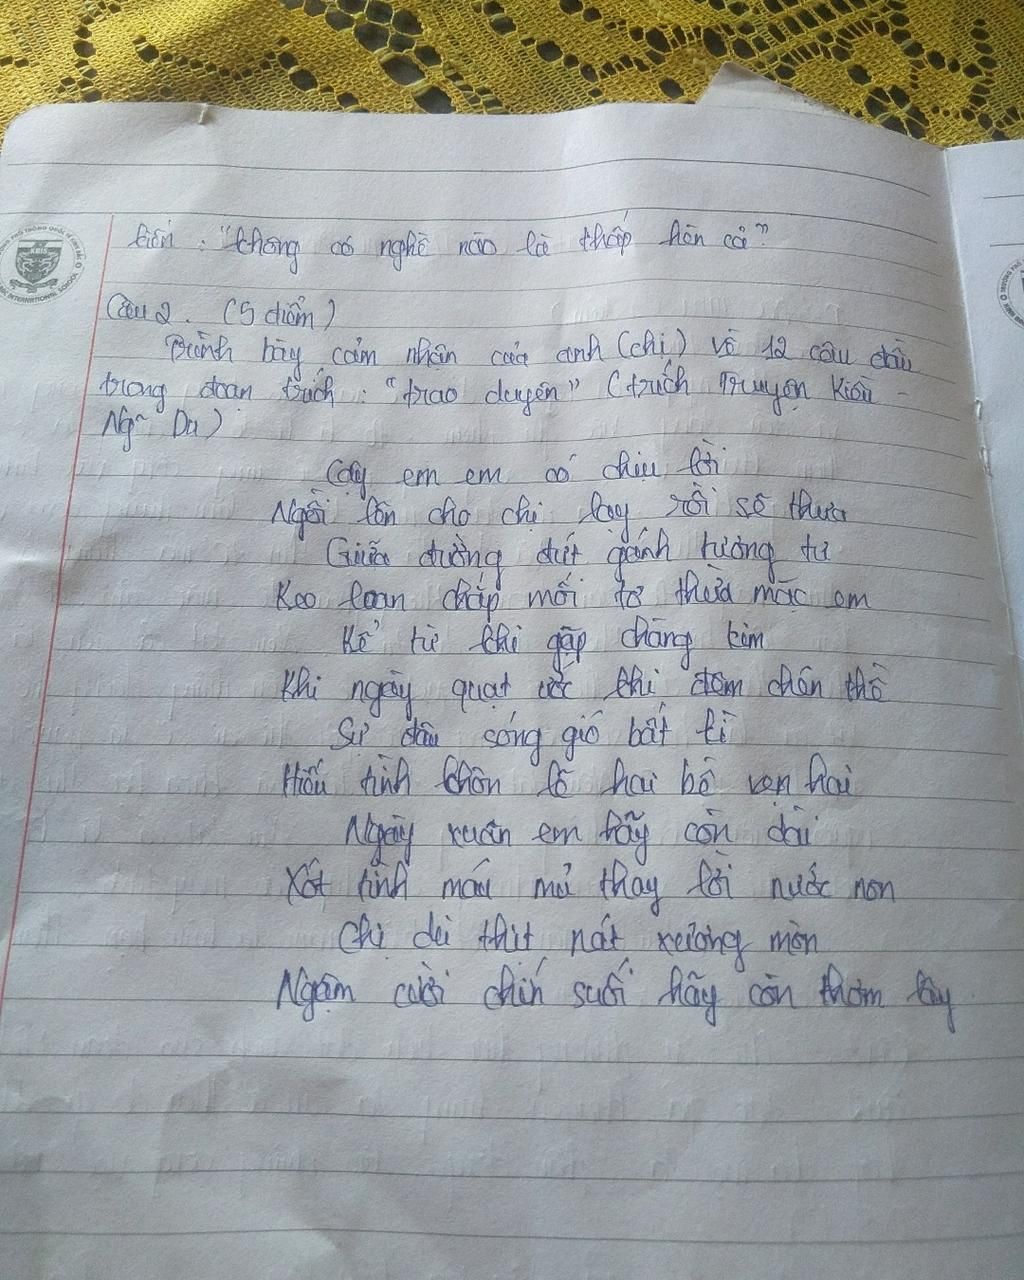 kiến : "không có nghề nào là thấp hèn cả"
Câu 2. (5 điểm)
Trình bày cảm nhận của anh (chị) về 12 câu đầu
trong đoạn trích : "trao duyên" (trích Truyện Kiều -
Ng~ Du)
Cậy em em có chịu lời
Ngồi lên cho chị lạy rồi sẽ thưa
Giữa đường đứt gánh tương tư
Keo loan chắp mối tơ thừa mặc em
Kể từ khi gặp chàng kim
Khi ngày quạt ước khi đêm chén thề
Sự đâu sóng gió bất kì
Hiếu tình khôn lẽ hai bề vẹn hai
Ngày xuân em hãy còn dài
Xót tình máu mủ thay lời nước non
Chị dù thịt nát xương mòn
Ngậm cười chín suối hãy còn thơm lây